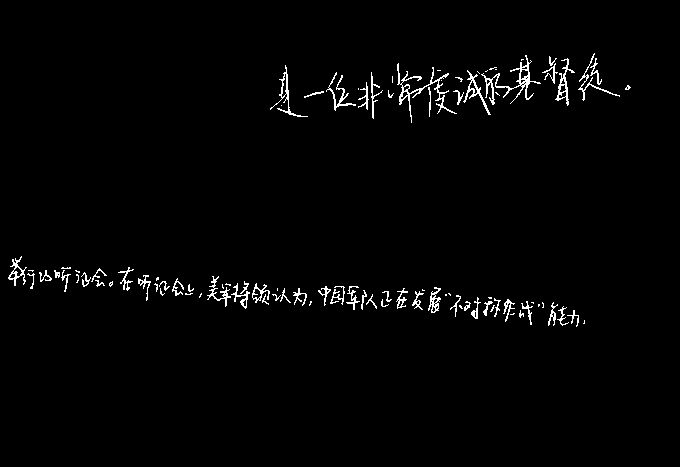 是一位非常虔诚的基督徒。
举行的听证会。在听证会上,美军将领认为,中国军队正在发展“不对称作战”能力,